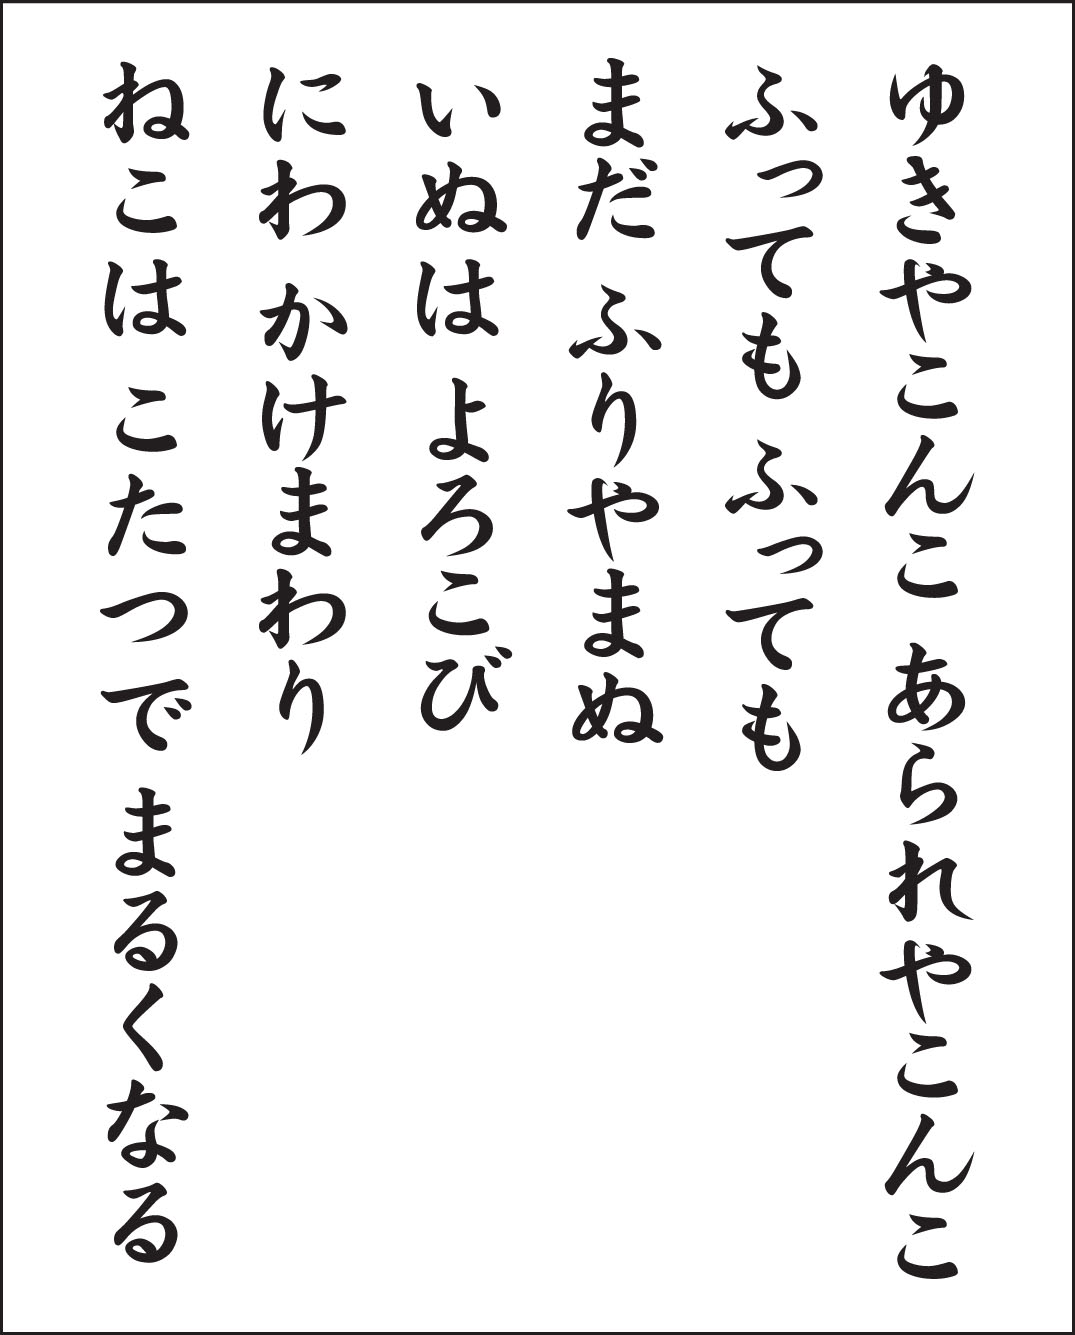 ゆきやこんこ あられやこんこ
ふっても ふっても
まだ ふりやまぬ
いぬは よろこび
にわ かけまわり
ねこは こたつで まるくなる